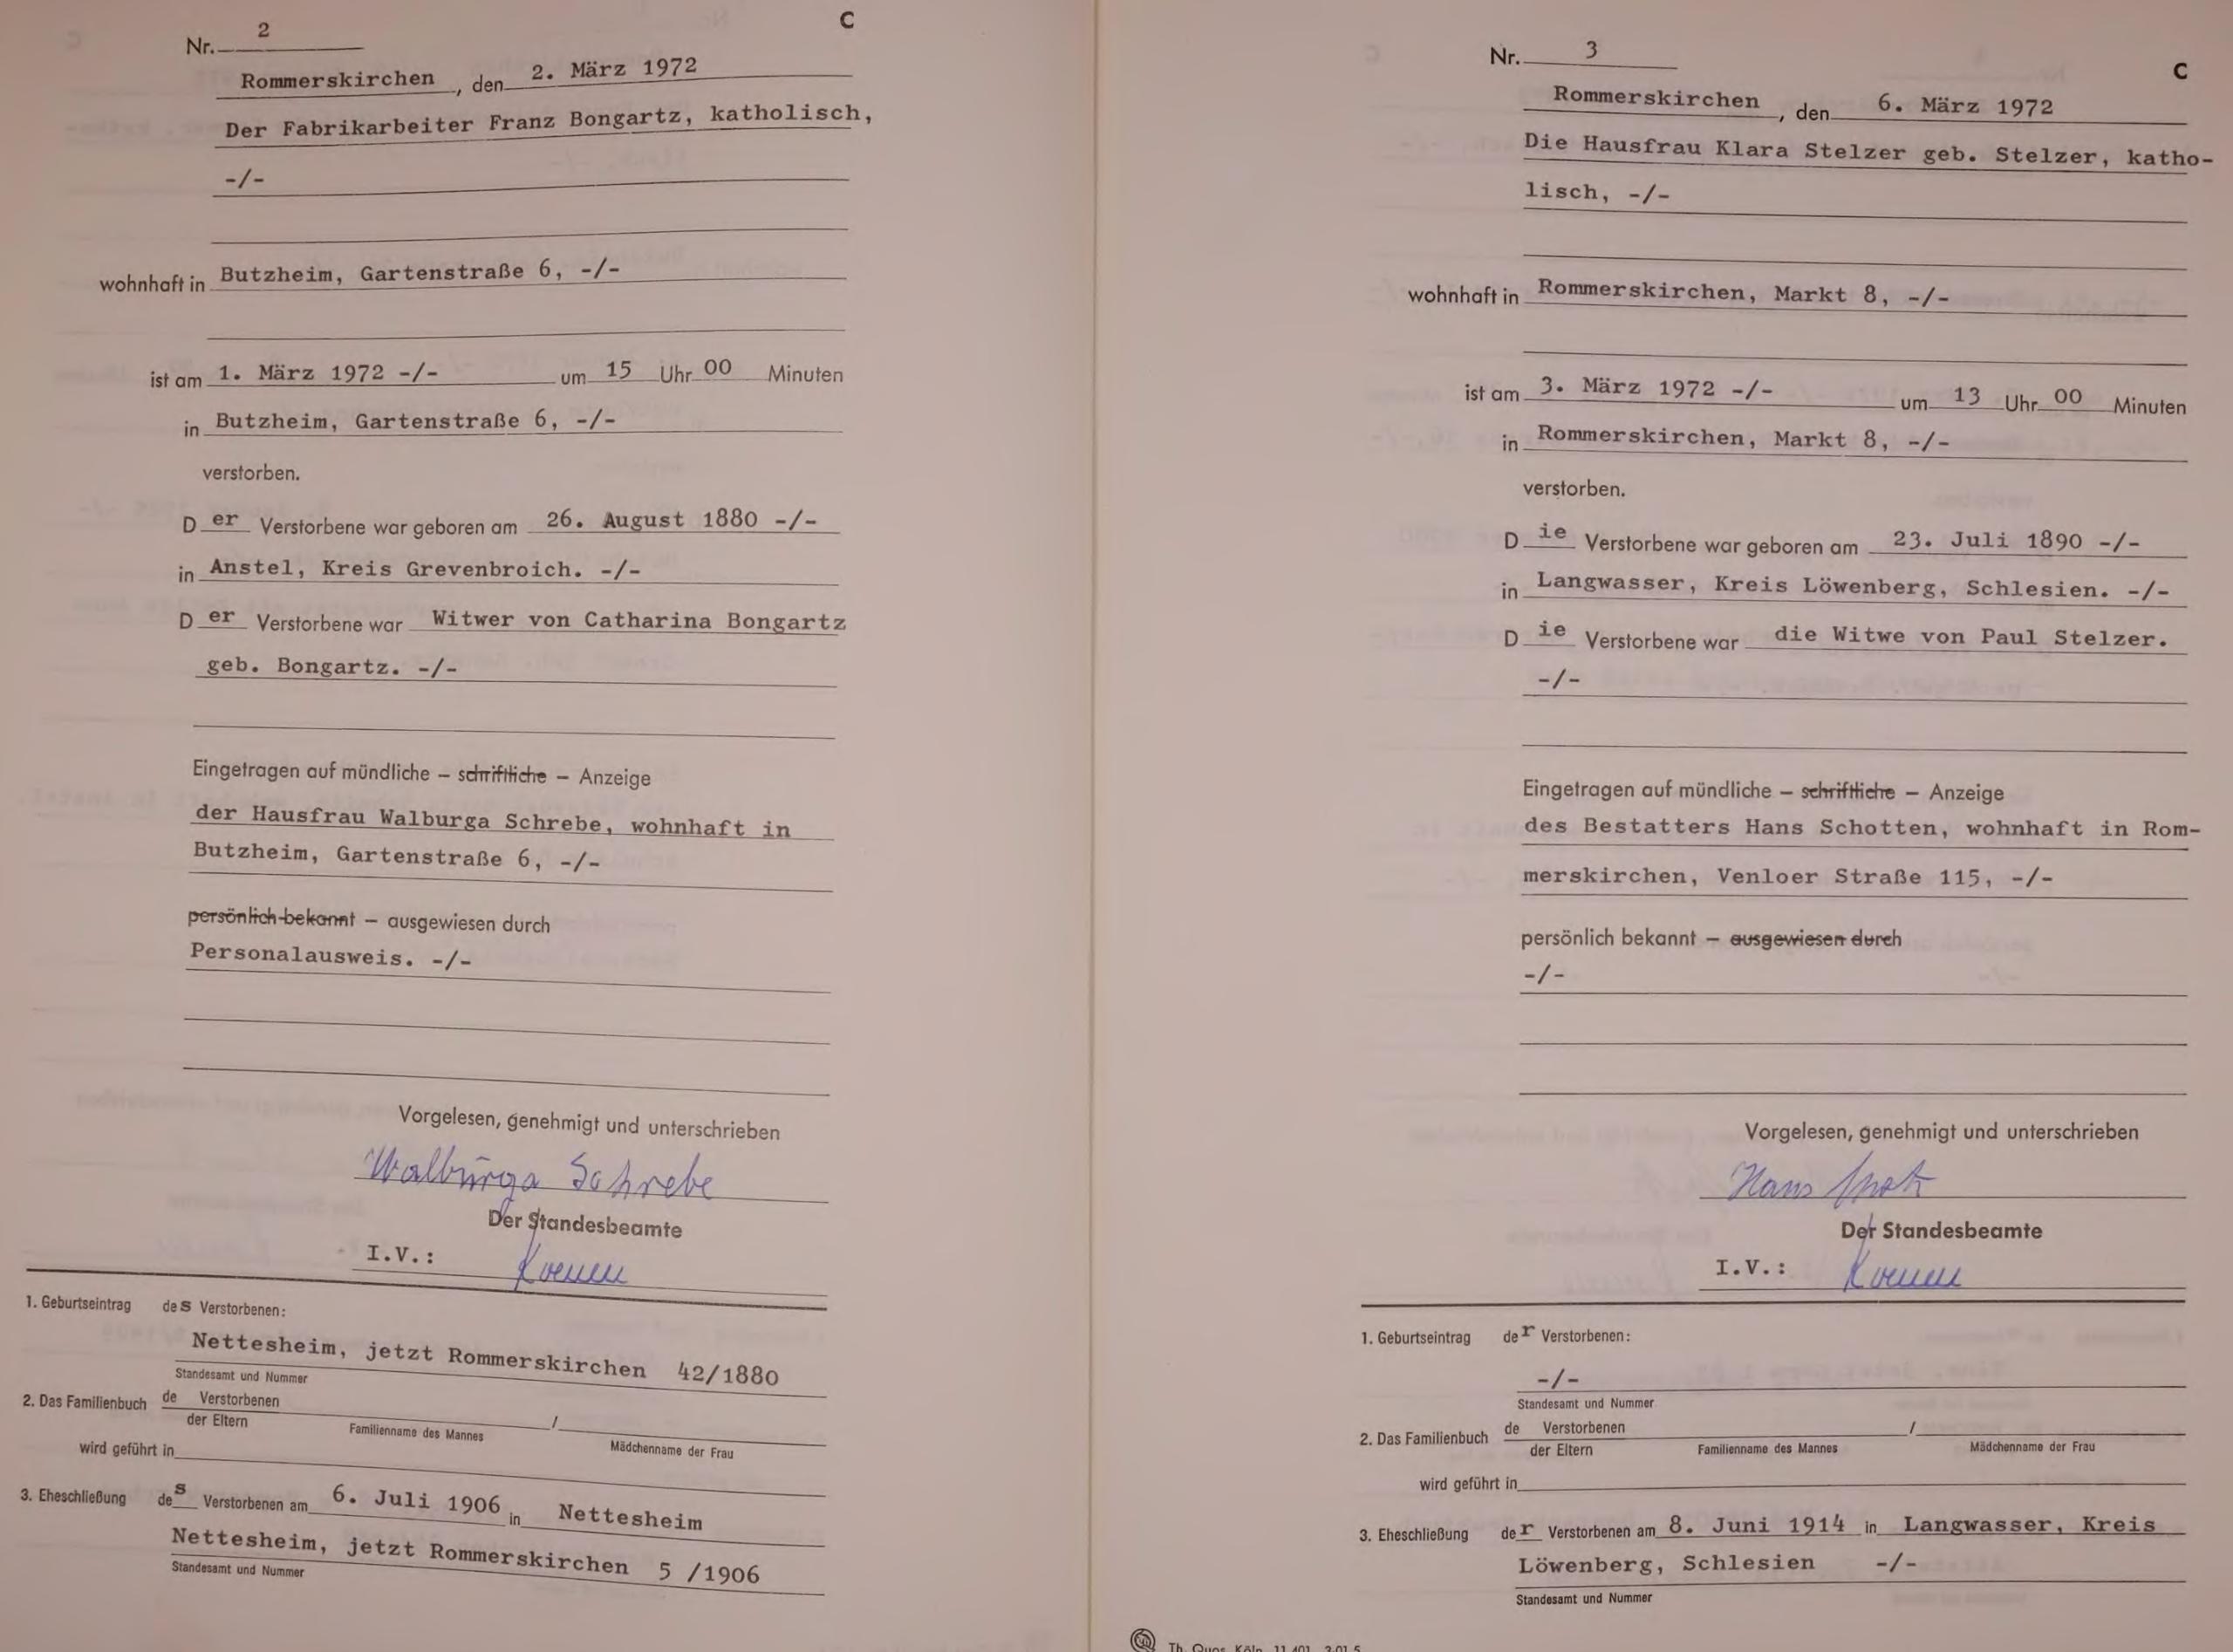 C
Nr. 2
Rommerskirchen, den 2. März 1972
Der Fabrikarbeiter Franz Bongartz, katholisch,
-/-
wohnhaft in Butzheim, Gartenstraße 6, -/-
ist am 1. März 1972 -/- um 15 Uhr 00 Minuten
in Butzheim, Gartenstraße 6, -/-
verstorben.
Der Verstorbene war geboren am 26. August 1880 -/-
in Anstel, Kreis Grevenbroich. -/-
Der Verstorbene war Witwer von Catharina Bongartz
geb. Bongartz. -/-
Eingetragen auf mündliche – schriftliche – Anzeige
der Hausfrau Walburga Schrebe, wohnhaft in
Butzheim, Gartenstraße 6, -/-
persönlich bekannt – ausgewiesen durch
Personalausweis. -/-
Vorgelesen, genehmigt und unterschrieben
Walburga Schrebe
Der Standesbeamte
I.V.: Koenen
1. Geburtseintrag des Verstorbenen:
Nettesheim, jetzt Rommerskirchen 42/1880
Standesamt und Nummer
2. Das Familienbuch de Verstorbenen /
der Eltern Familienname des Mannes Mädchenname der Frau
wird geführt in
3. Eheschließung des Verstorbenen am 6. Juli 1906 in Nettesheim
Nettesheim, jetzt Rommerskirchen 5 /1906
Standesamt und Nummer
Nr. 3
C
Rommerskirchen, den 6. März 1972
Die Hausfrau Klara Stelzer geb. Stelzer, katho-
lisch, -/-
wohnhaft in Rommerskirchen, Markt 8, -/-
ist am 3. März 1972 -/- um 13 Uhr 00 Minuten
in Rommerskirchen, Markt 8, -/-
verstorben.
Die Verstorbene war geboren am 23. Juli 1890 -/-
in Langwasser, Kreis Löwenberg, Schlesien. -/-
Die Verstorbene war die Witwe von Paul Stelzer.
-/-
Eingetragen auf mündliche – schriftliche – Anzeige
des Bestatters Hans Schotten, wohnhaft in Rom-
merskirchen, Venloer Straße 115, -/-
persönlich bekannt – ausgewiesen durch
-/-
Vorgelesen, genehmigt und unterschrieben
Hans
Der Standesbeamte
I.V.: Koenen
1. Geburtseintrag der Verstorbenen:
-/-
Standesamt und Nummer
2. Das Familienbuch de Verstorbenen /
der Eltern Familienname des Mannes Mädchenname der Frau
wird geführt in
3. Eheschließung der Verstorbenen am 8. Juni 1914 in Langwasser, Kreis
Löwenberg, Schlesien -/-
Standesamt und Nummer